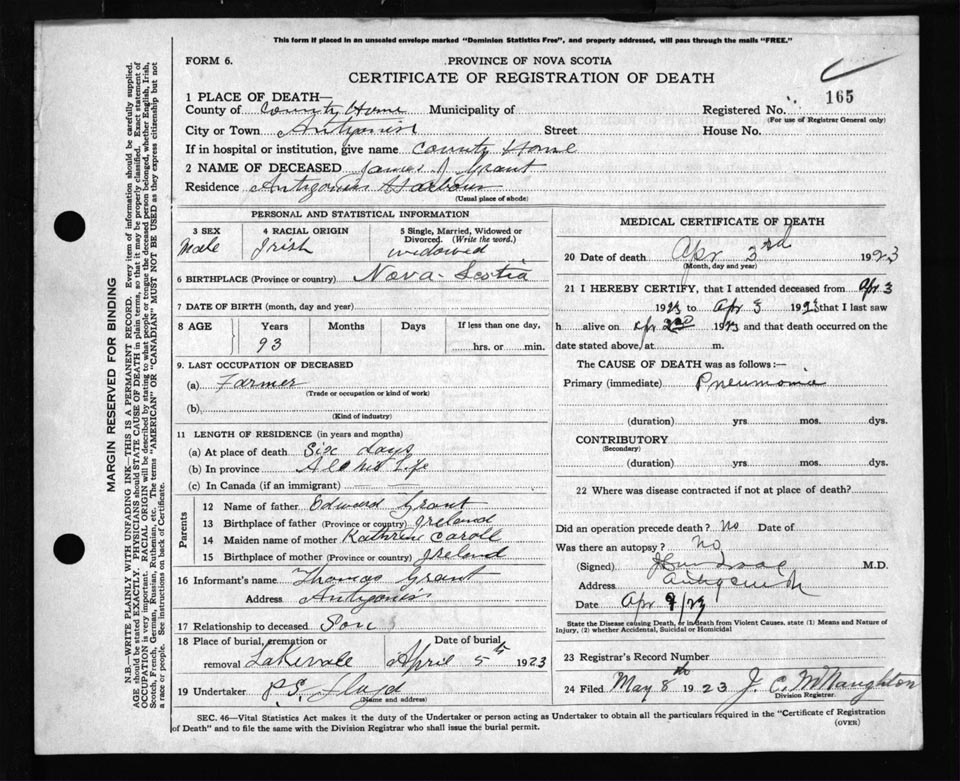 This form if placed in an unsealed envelope marked "Dominion Statistics Free", and properly addressed, will pass through the mails "FREE."
FORM 6.
PROVINCE OF NOVA SCOTIA
CERTIFICATE OF REGISTRATION OF DEATH
165
1 PLACE OF DEATH—
County of County Home Municipality of Registered No.
(For use of Registrar General only)
City or Town Antigonish Street House No.
If in hospital or institution, give name County Home
2 NAME OF DECEASED James J Grant
Residence Antigonish Harbour
(Usual place of abode)
PERSONAL AND STATISTICAL INFORMATION
3 SEX 4 RACIAL ORIGIN 5 Single, Married, Widowed or Divorced. (Write the word.)
Male Irish widowed
6 BIRTHPLACE (Province or country) Nova Scotia
7 DATE OF BIRTH (month, day and year)
8 AGE Years Months Days If less than one day,
93 hrs. or min.
9. LAST OCCUPATION OF DECEASED
(a) Farmer
(Trade or occupation or kind of work)
(b)
(Kind of industry)
11 LENGTH OF RESIDENCE (in years and months)
(a) At place of death Six days
(b) In province All his Life
(c) In Canada (if an immigrant)
Parents
12 Name of father Edward Grant
13 Birthplace of father (Province or country) Ireland
14 Maiden name of mother Kathren Caroll
15 Birthplace of mother (Province or country) Ireland
16 Informant's name Thomas Grant
Address Antigonish
17 Relationship to deceased Son
18 Place of burial, cremation or removal Lakevale Date of burial April 5th 1923
19 Undertaker P.S. Floyd
(Name and address)
MEDICAL CERTIFICATE OF DEATH
20 Date of death Apr 3rd 1923
(Month, day and year)
21 I HEREBY CERTIFY, that I attended deceased from Apr 3
1923 to Apr 3 1923 that I last saw
h alive on Apr 2nd 1923 and that death occurred on
date stated above, at m.
The CAUSE OF DEATH was as follows:—
Primary (immediate) Pneumonia
(duration) yrs. mos. dys.
CONTRIBUTORY
(Secondary)
(duration) yrs. mos. dys.
22 Where was disease contracted if not at place of death?
Did an operation precede death? No Date of
Was there an autopsy? No
(Signed) M.D.
Address Antigonish
Date Apr 9/23
State the Disease causing Death, or in death from Violent Causes, state (1) Means and Nature of
Injury, (2) whether Accidental, Suicidal or Homicidal
23 Registrar's Record Number
24 Filed May 8th 1923 J. C. McNaughton
Division Registrar.
SEC. 46—Vital Statistics Act makes it the duty of the Undertaker or person acting as Undertaker to obtain all the particulars required in the "Certificate of Registration
of Death" and to file the same with the Division Registrar who shall issue the burial permit.
(OVER)
MARGIN RESERVED FOR BINDING
N.B.—WRITE PLAINLY WITH UNFADING INK—THIS IS A PERMANENT RECORD. Every item of information should be carefully supplied.
AGE should be stated EXACTLY. PHYSICIANS should STATE CAUSE OF DEATH in plain terms, so that it may be properly classified. Exact statement of
OCCUPATION is very important. RACIAL ORIGIN will be described by stating to what people or tongue the deceased person belonged, whether English, Irish,
Scotch, French, German, Russian, Ruthenian, etc. The terms "AMERICAN" or "CANADIAN" MUST NOT BE USED as they express citizenship but not
a race or people. See instructions on back of Certificate.